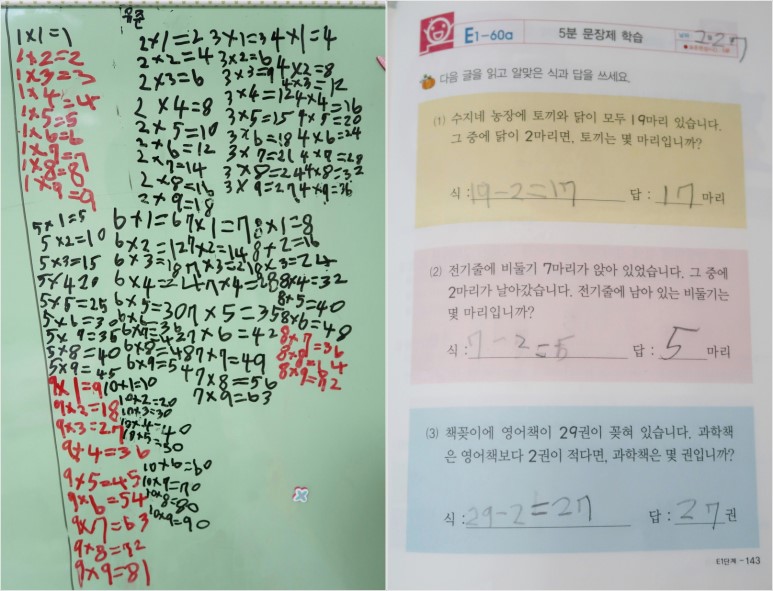 용준
1x1=1
1x2=2
1x3=3
1x4=4
1x5=5
1x6=6
1x7=7
1x8=8
1x9=9
2x1=2
2x2=4
2x3=6
2x4=8
2x5=10
2x6=12
2x7=14
2x8=16
2x9=18
3x1=3
3x2=6
3x3=9
3x4=12
3x5=15
3x6=18
3x7=21
3x8=24
3x9=27
4x1=4
4x2=8
4x3=12
4x4=16
4x5=20
4x6=24
4x7=28
4x8=32
4x9=36
5x1=5
5x2=10
5x3=15
5x4 20
5x5=25
5x6=30
5x7=35
5x8=40
5x9=45
6x1=6
6x2=12
6x3=18
6x4=24
6x5=30
6x6=
6x7=36
6x8=48
6x9=54
7x1=7
7x2=14
7x3=21
7x4=28
7x5=35
7x6=42
7x7=49
7x8=56
7x9=63
8x1=8
8+2=16
8x3=24
8x4=32
8x5=40
8x6=48
8x7=36
8x8=64
8x9=92
9x1=9
9x2=18
9x3=27
9x4=36
9x5=45
9x6=54
9x7=63
9x8=92
9x9=81
10x1=10
10x2=20
10x3=30
10x4=40
10x5=50
10x6=60
10x9=70
10x8=80
10x9=90
E1-60a 5분 문장제 학습
다음 글을 읽고 알맞은 식과 답을 쓰세요.
(1) 수지네 농장에 토끼와 닭이 모두 19마리 있습니다.
그 중에 닭이 2마리면, 토끼는 몇 마리입니까?
식 : 19-2=17 답 : 17 마리
(2) 전기줄에 비둘기 7마리가 앉아 있었습니다. 그 중에
2마리가 날아갔습니다. 전기줄에 남아 있는 비둘기는
몇 마리입니까?
식 : 7-2=5 답 : 5 마리
(3) 책꽂이에 영어책이 29권이 꽂혀 있습니다. 과학책
은 영어책보다 2권이 적다면, 과학책은 몇 권입니까?
식 : 29-2=27 답 : 27 권
E1단계-143